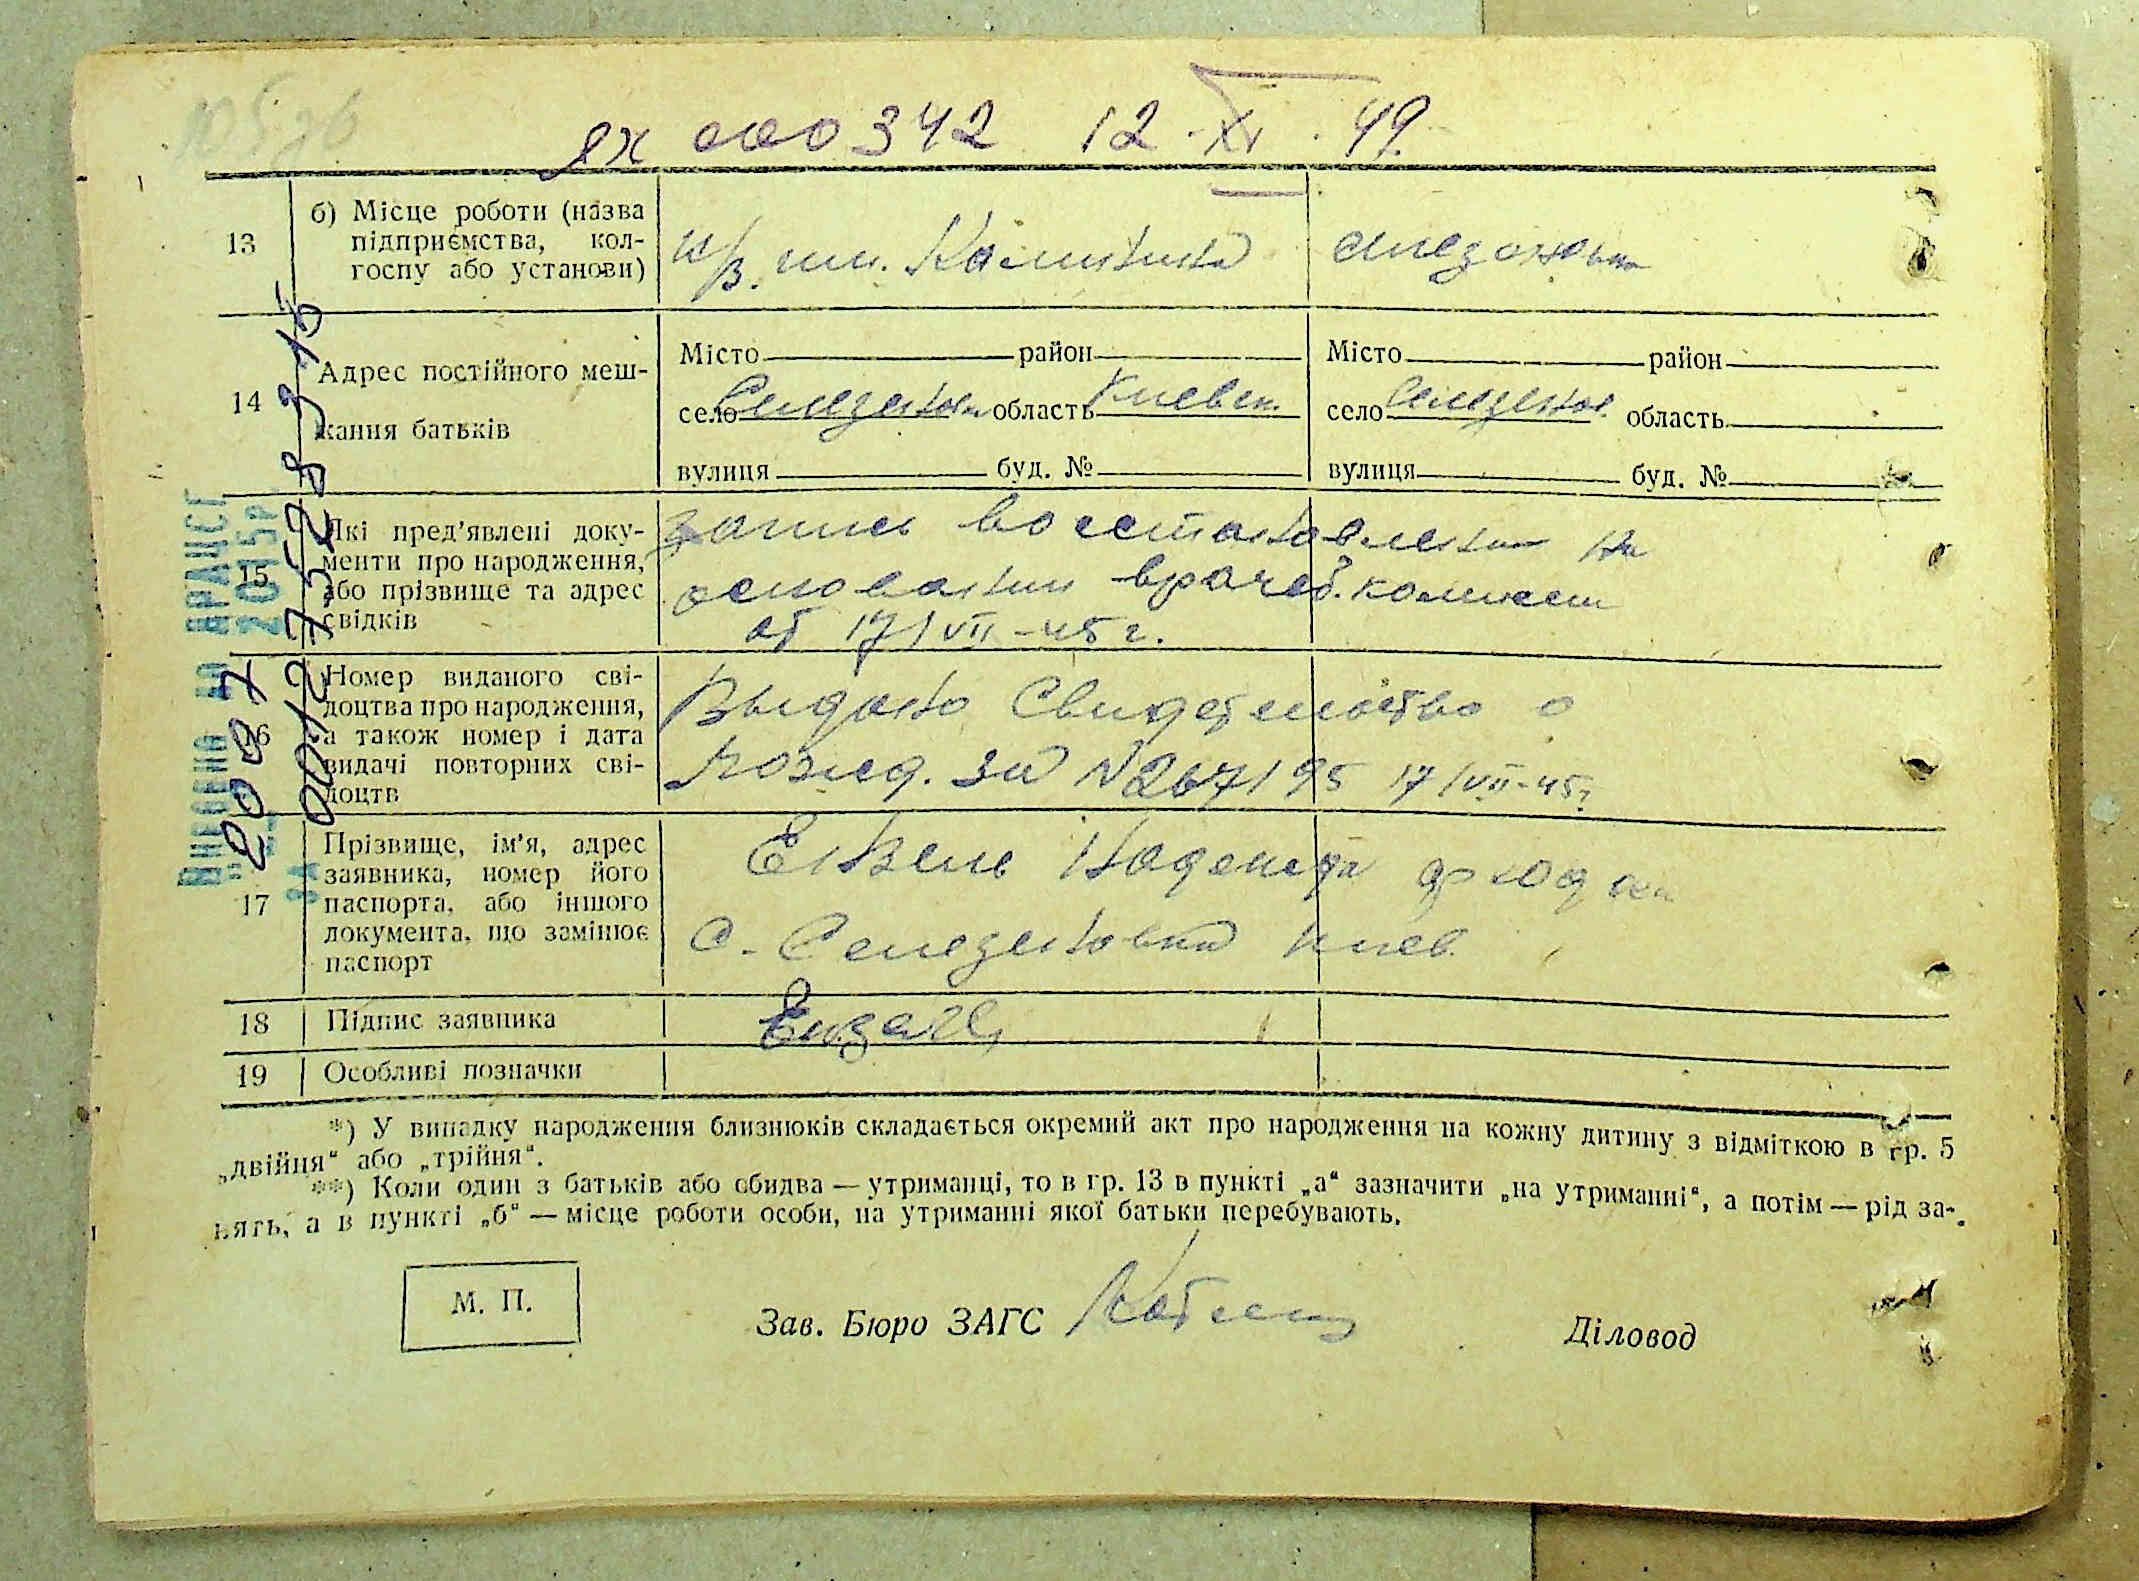 ях 000342 12.XI.49.
13
б) Місце роботи (назва
підприємства, кол-
госпу або установи)
к/з. им. Калинина
14
Адрес постійного меш-
кання батьків
Місто район
село область Киевск.
вулиця буд. №
Місто район
село область
вулиця буд. №
15
Які пред'явлені доку-
менти про народження,
або прізвище та адрес
свідків
запись восстановлена на
основании врачеб. комиссии
от 17/VII-45 г.
16
Номер виданого сві-
доцтва про народження,
а також номер і дата
видачі повторних сві-
доцтв
Выдано Свидетельство о
рожд. за N 267195 17/VII-45г.
17
Прізвище, ім'я, адрес
заявника, номер його
паспорта, або іншого
документа, що замінює
паспорт
с. Селезеновка Киев.
18
Підпис заявника
19
Особливі позначки
*) У випадку народження близнюків складається окремий акт про народження на кожну дитину з відміткою в гр. 5
„двійня“ або „трійня“.
**) Коли один з батьків або обидва — утриманці, то в гр. 13 в пункті „а“ зазначити „на утриманні“, а потім — рід за-
нять, а в пункті „б“ — місце роботи особи, на утриманні якої батьки перебувають.
М. П.
Зав. Бюро ЗАГС
Діловод